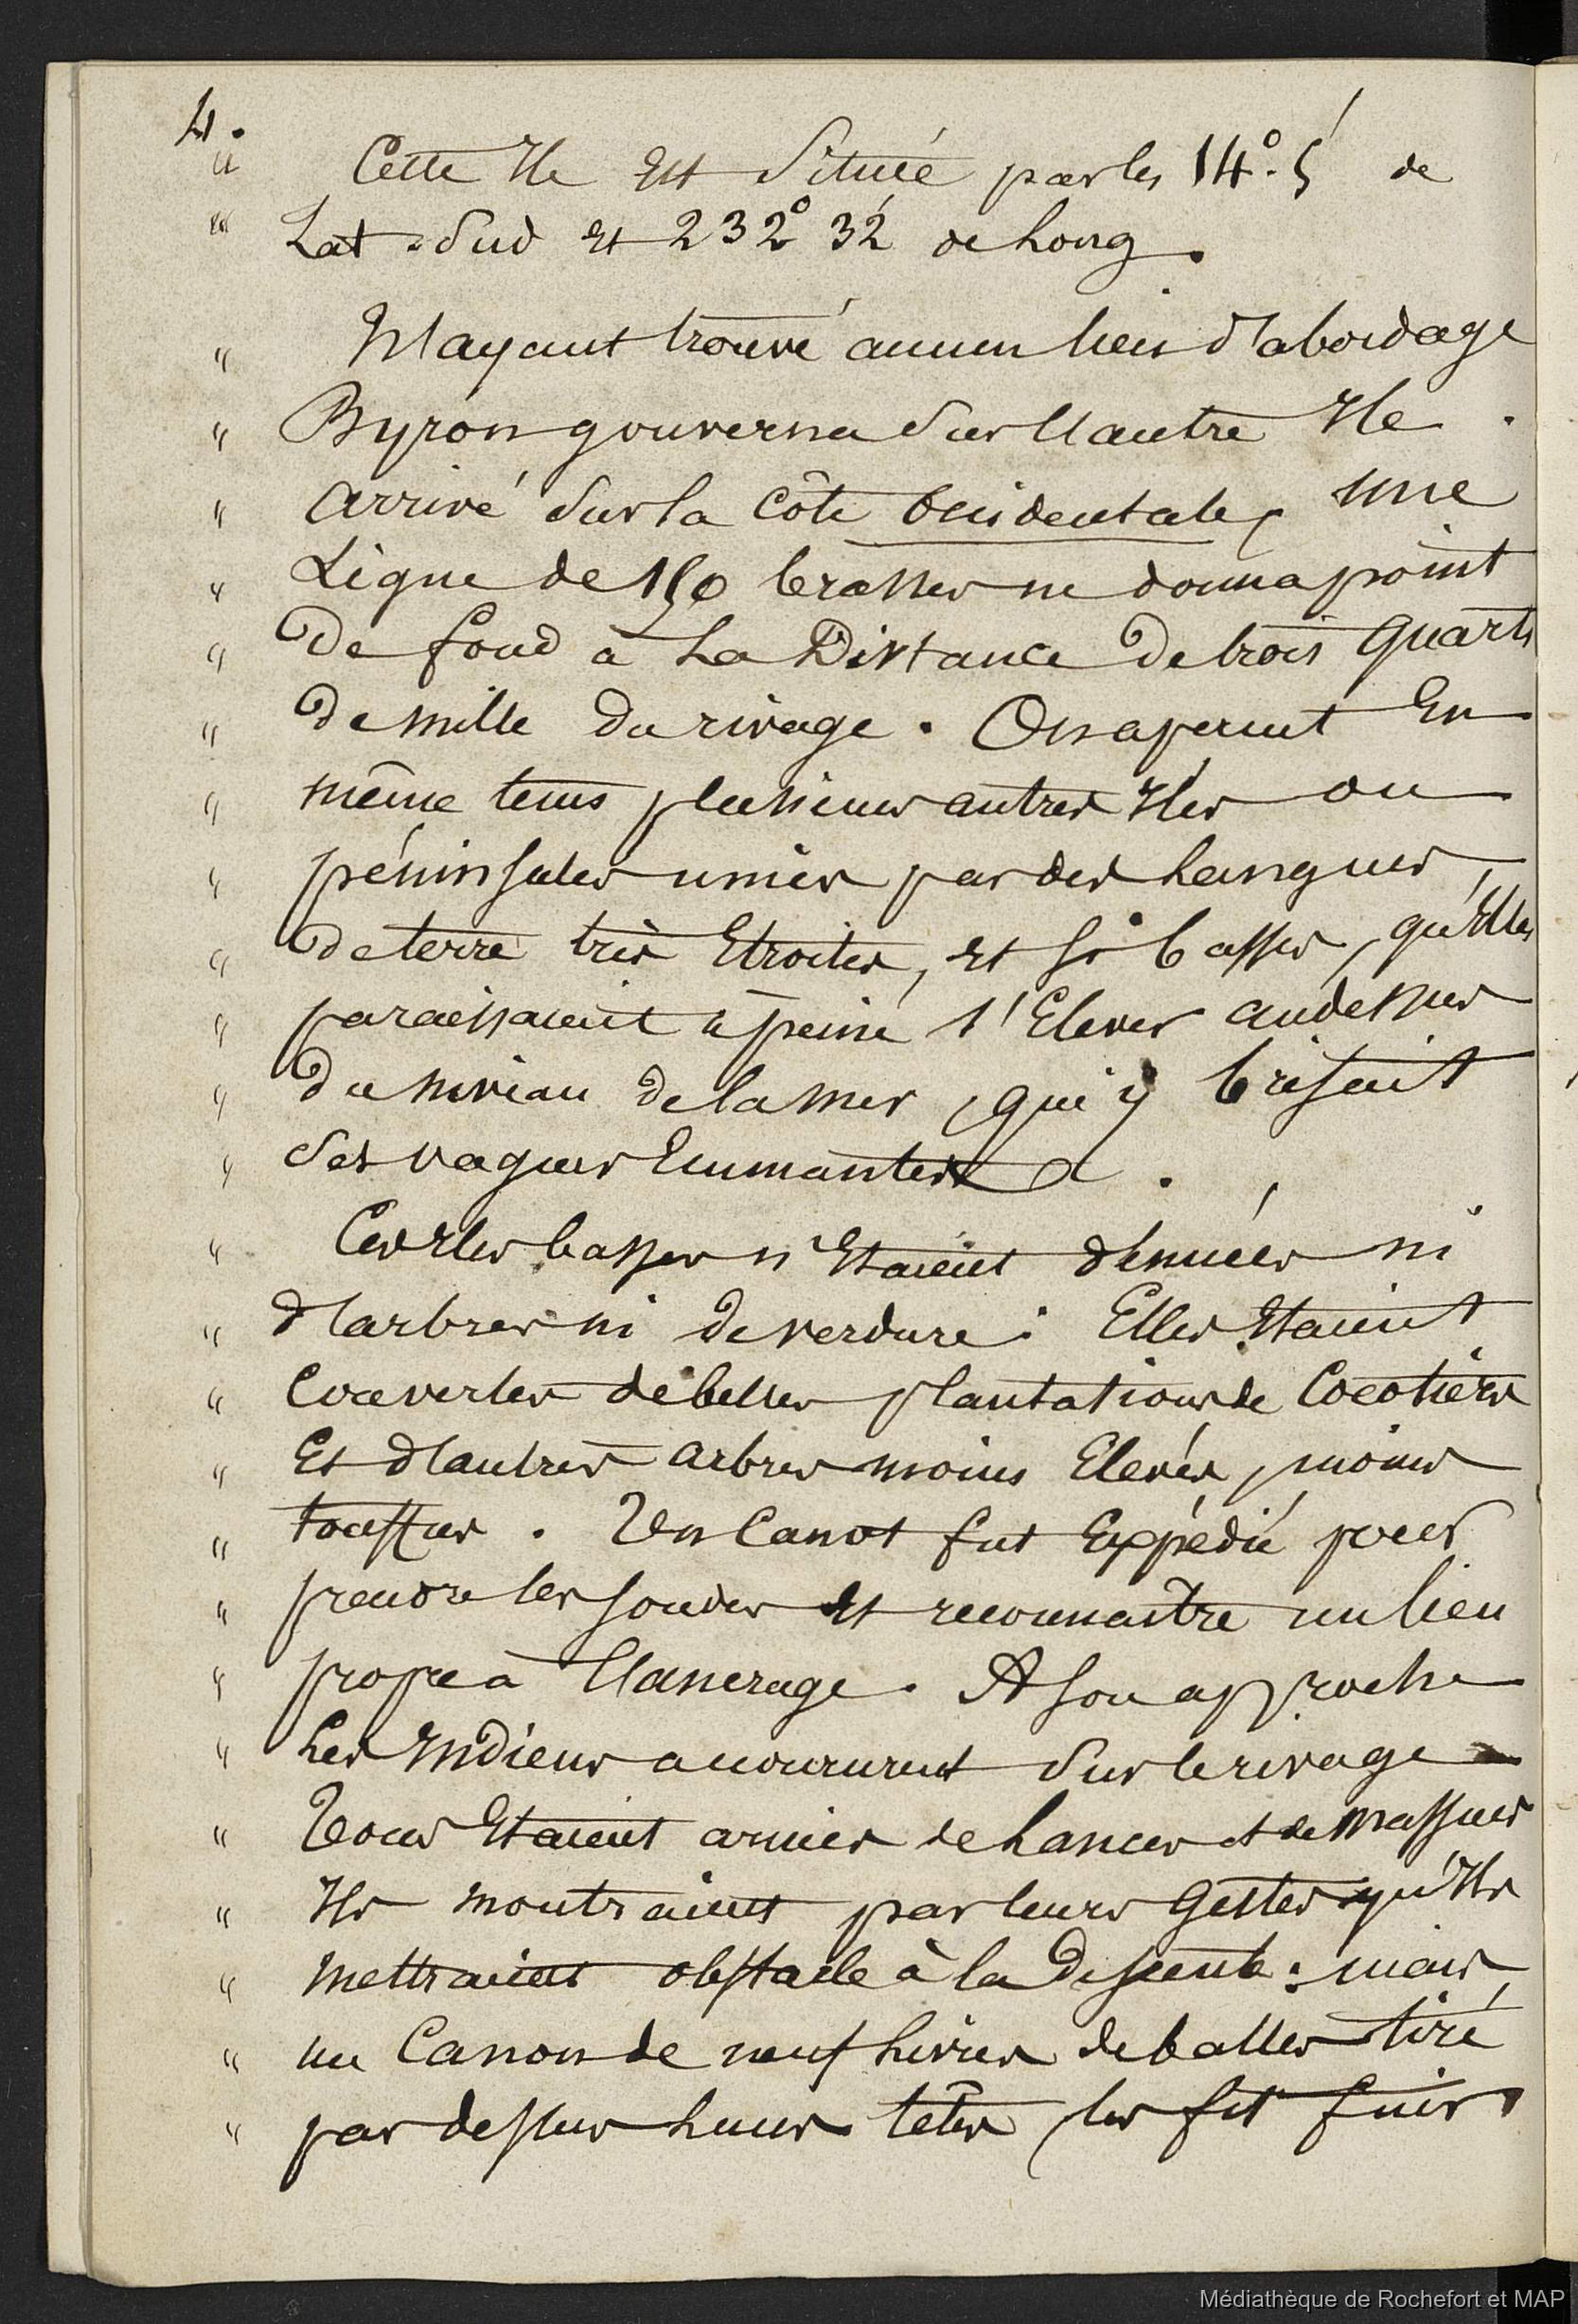 4.
" Cette Ile Est Située par les 14°. 5' de
" Lat. Sud et 232° 32' de Long.
" N'ayant trouvé aucun lieu d'abordage
" Byron gouverna Sur l'autre Ile.
" arrivé Sur la Côte Occidentale, une
" Ligne de 150 brasses ne donna point
" De fond à La Distance De trois quarts
" De mille Du rivage. On aperçut En
" même tems plusieurs autres Iles ou
" péninsules unies par des Langues
" De terre très Etroites, et si basses, qu'Elles
" paraissaient à peine s'Elever audessus
" Du niveau De la mer, qui y brisait
" Ses vagues Ecumantes &.
" Ces Iles basses n'Etaient dénuées ni
" d'arbres ni De verdure : Elles Etaient
" Couvertes de belles plantations de Cocotiers
" Et d'autres arbres moins Elevés, moins
" touffus. Un Canot fut Expédié pour
" prendre les sondes Et reconnaitre un lieu
" propre à l'ancrage. A son approche
" Les Indiens accoururent Sur le rivage
" Tous Etaient armés de Lances et de massues
" Ils montraient par leurs Gestes qu'Ils
" mettraient obstacle à la Descente : mais,
" un Canon de neuf Livres de balles tiré
" par dessus Leurs têtes, les fit fuir,
Médiathèque de Rochefort et MAP